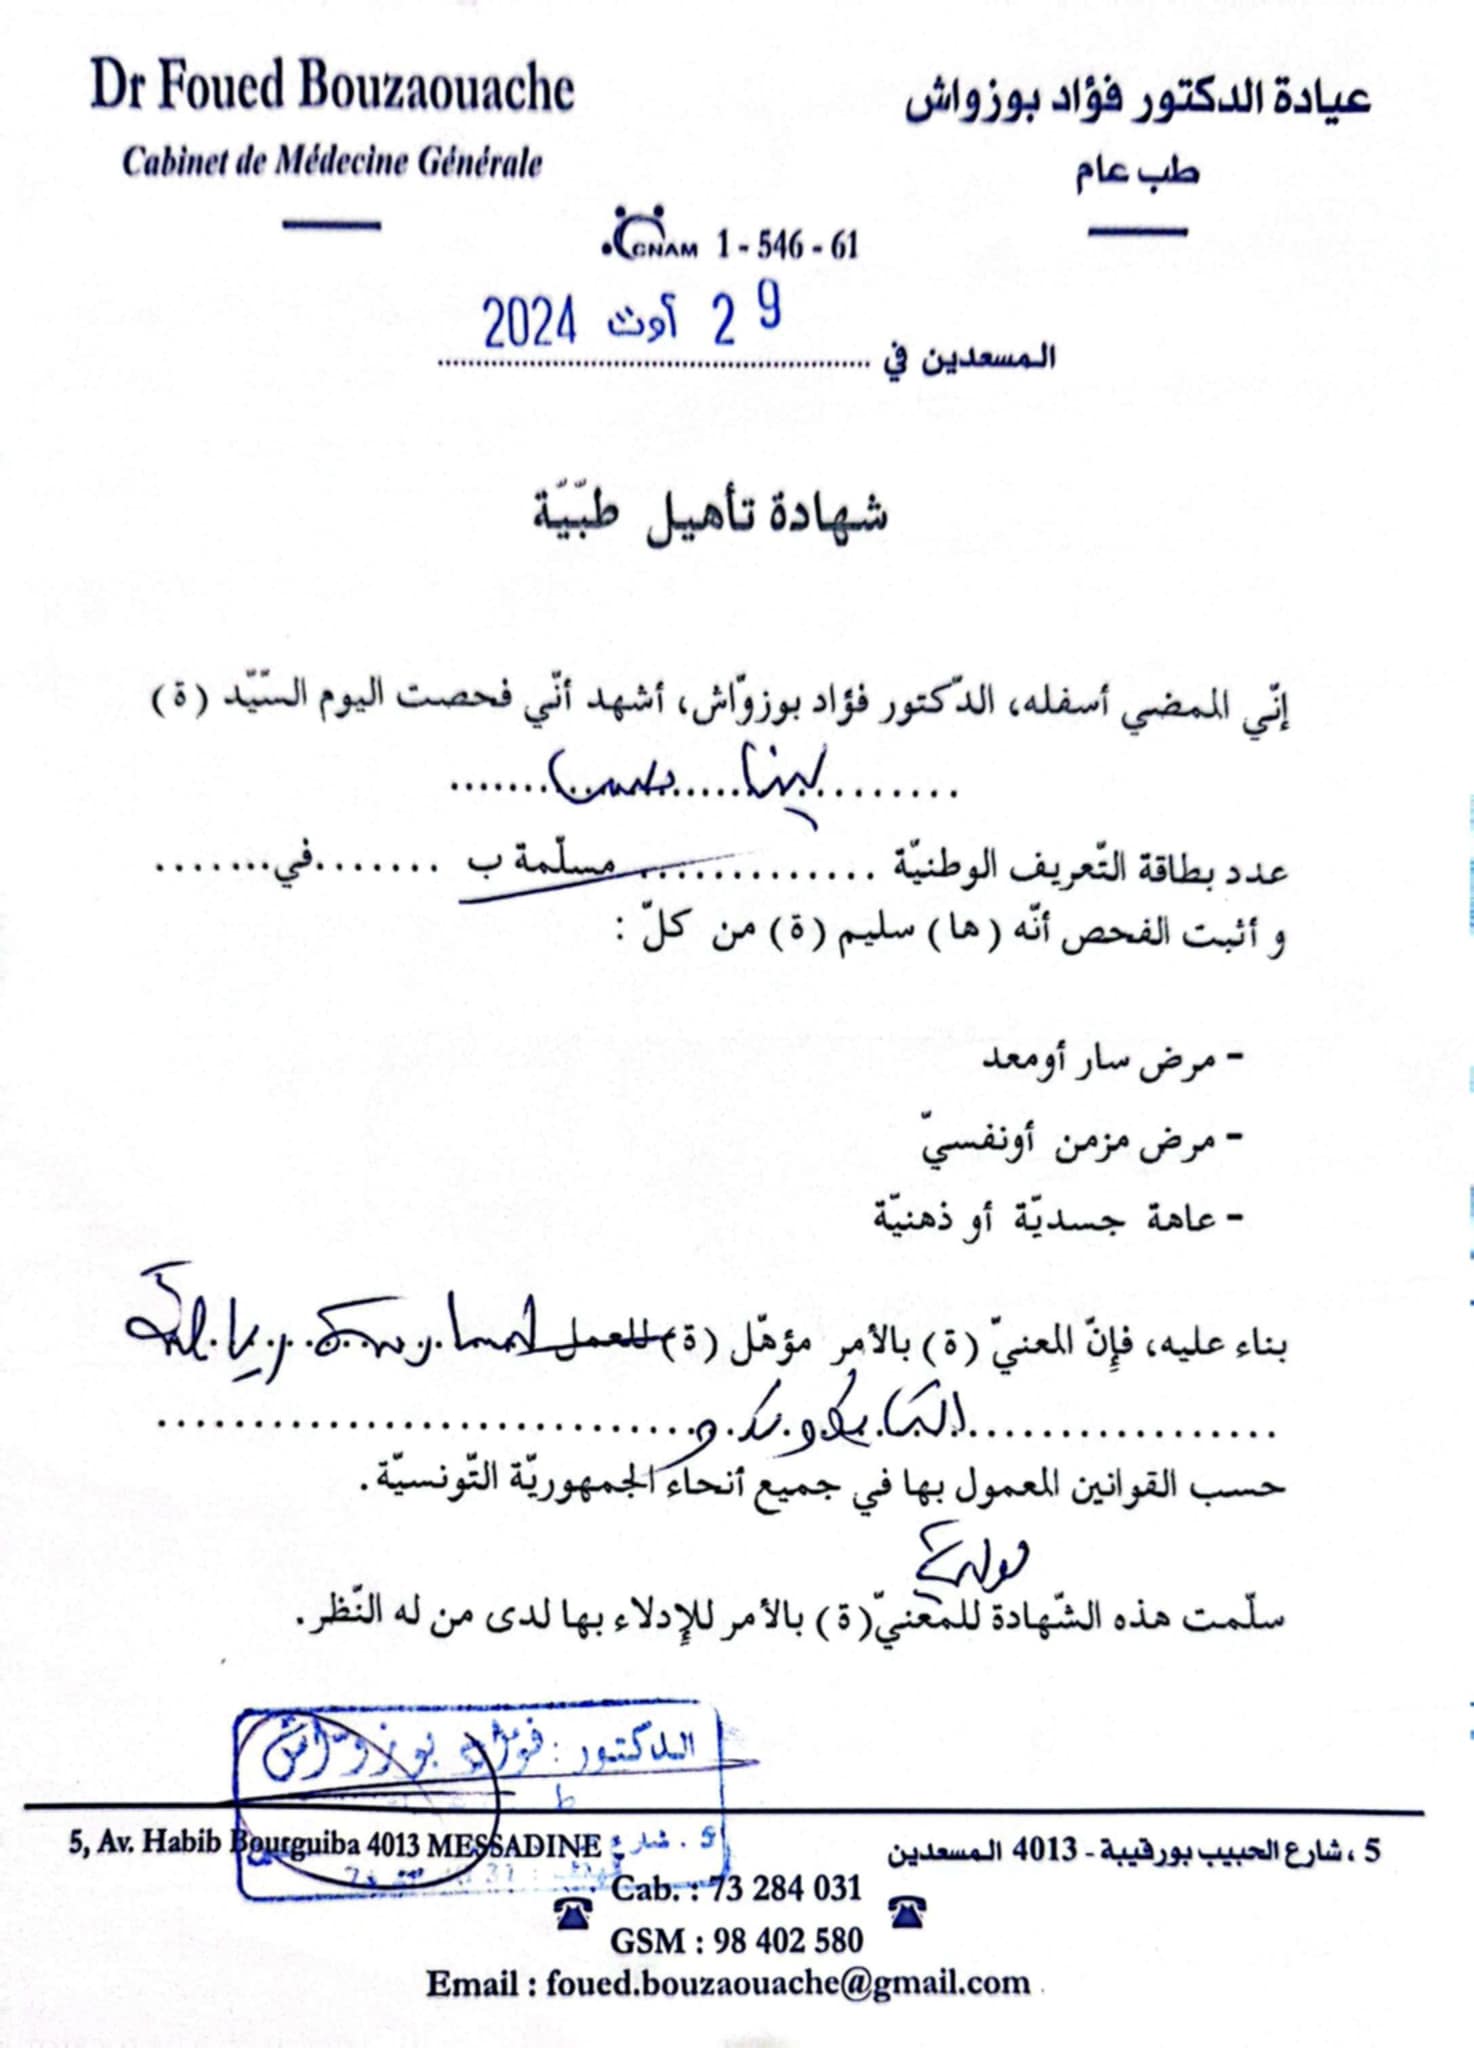 Dr Foued Bouzaouache
Cabinet de Médecine Générale
عيادة الدكتور فؤاد بوزواش
طب عام
CNAM 1 - 546 - 61
المسعدين في 29 أوت 2024
شهادة تأهيل طبّيّة
إنّي الممضي أسفله، الدّكتور فؤاد بوزوّاش، أشهد أنّي فحصت اليوم السّيّد (ة)
لينا
عدد بطاقة التّعريف الوطنيّة ............. مسلّمة ب .......في.......
و أثبت الفحص أنّه (ها) سليم (ة) من كلّ :
- مرض سار أومعد
- مرض مزمن أونفسيّ
- عاهة جسديّة أو ذهنيّة
بناء عليه، فإنّ المعنيّ (ة) بالأمر مؤهّل (ة) للعمل
التايكوندو
حسب القوانين المعمول بها في جميع أنحاء الجمهوريّة التّونسيّة.
سلّمت هذه الشّهادة للمعنيّ(ة) بالأمر للإدلاء بها لدى من له النّظر.
الدكتور : فؤاد بوزوّاش
5 . شارع
5, Av. Habib Bourguiba 4013 MESSADINE
5 ، شارع الحبيب بورقيبة - 4013 المسعدين
Cab. : 73 284 031
GSM : 98 402 580
Email : foued.bouzaouache@gmail.com